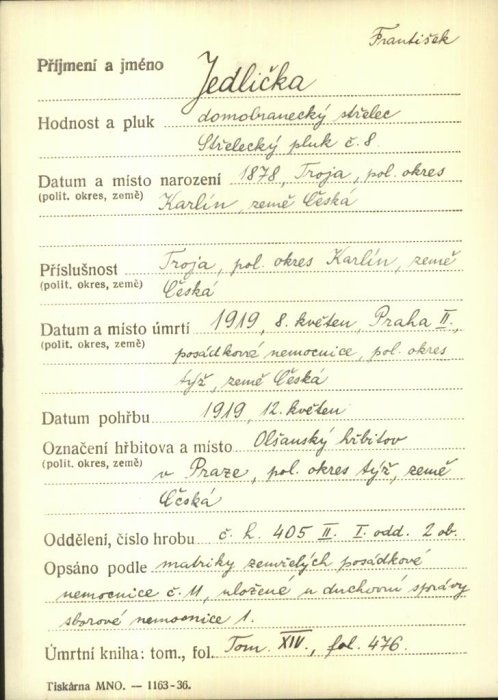 František
Příjmení a jméno Jedlička
Hodnost a pluk domobranecký střelec
Střelecký pluk č. 8.
Datum a místo narození 1878, Troja, pol. okres
(polit. okres, země) Karlín, země Česká
Příslušnost Troja, pol. okres Karlín, země
(polit. okres, země) Česká
Datum a místo úmrtí 1919, 8. květen, Praha II.,
(polit. okres, země) posádková nemocnice, pol. okres
týž, země Česká
Datum pohřbu 1919, 12. květen
Označení hřbitova a místo Olšanský hřbitov
(polit. okres, země) v Praze, pol. okres týž, země
Česká
Oddělení, číslo hrobu č. h. 405 II. I. odd. 2 ob.
Opsáno podle matriky zemřelých posádkové
nemocnice č. 11, uložené u duchovní správy
sborové nemocnice 1.
Úmrtní kniha: tom., fol. Tom. XIV., fol. 476.
Tiskárna MNO. — 1163-36.